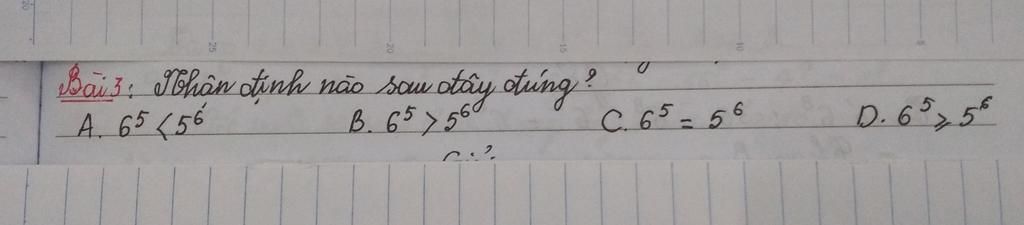 Bài 3: Nhận định nào sau đây đúng?
A. 6⁵ < 5⁶ B. 6⁵ > 5⁶ C. 6⁵ = 5⁶ D. 6⁵ ⩾ 5⁶